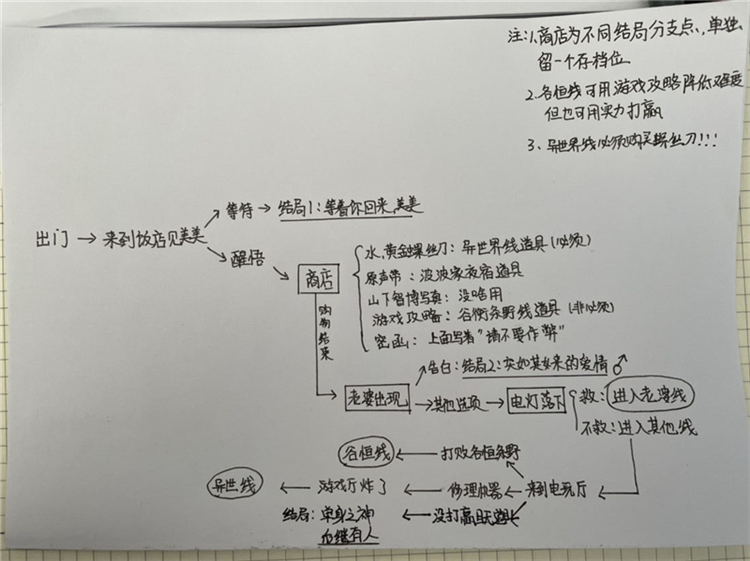 注:1.商店为不同结局分支点,单独
留一个存档位
2.谷恒线可用游戏攻略降低难度
但也可用实力打赢
3、异世界线必须购买螺丝刀!!!
出门 → 来到饭店见美美
等待 → 结局1:等着你回来,美美
醒悟
商店
水,黄金螺丝刀:异世界线道具(必须)
原声带:波波家夜宿道具
山下智博写真:没啥用
游戏攻略:谷衡条野线道具(非必须)
密函:上面写着“请不要作弊”
购物结束
老婆出现
告白:结局2:突如其来的爱情♂
其他选项 → 电灯落下
救:进入老婆线
不救:进入其他线
谷恒线 ← 打败谷恒条野
异世线 ← 游戏厅炸了 ← 修理机器 ← 来到电玩厅
结局:单身之神 ← 没打赢且无道具
后继有人